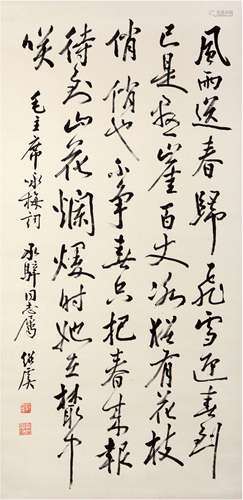 風雨送春歸飛雪迎春到
已是懸崖百丈冰猶有花枝
俏俏也不争春只把春來報
待到山花爛熳時她在叢中
咲
毛主席咏梅詞 同志屬